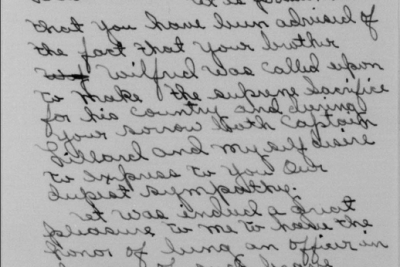 that you have been advised of
the fact that your brother
Wilfrid was called upon
to make the supreme sacrifice
for his country and during
your sorrow both Captain
and myself desire
to express to you our
deepest sympathy.
It was indeed a great
pleasure to me to have the
honor of being an officer in